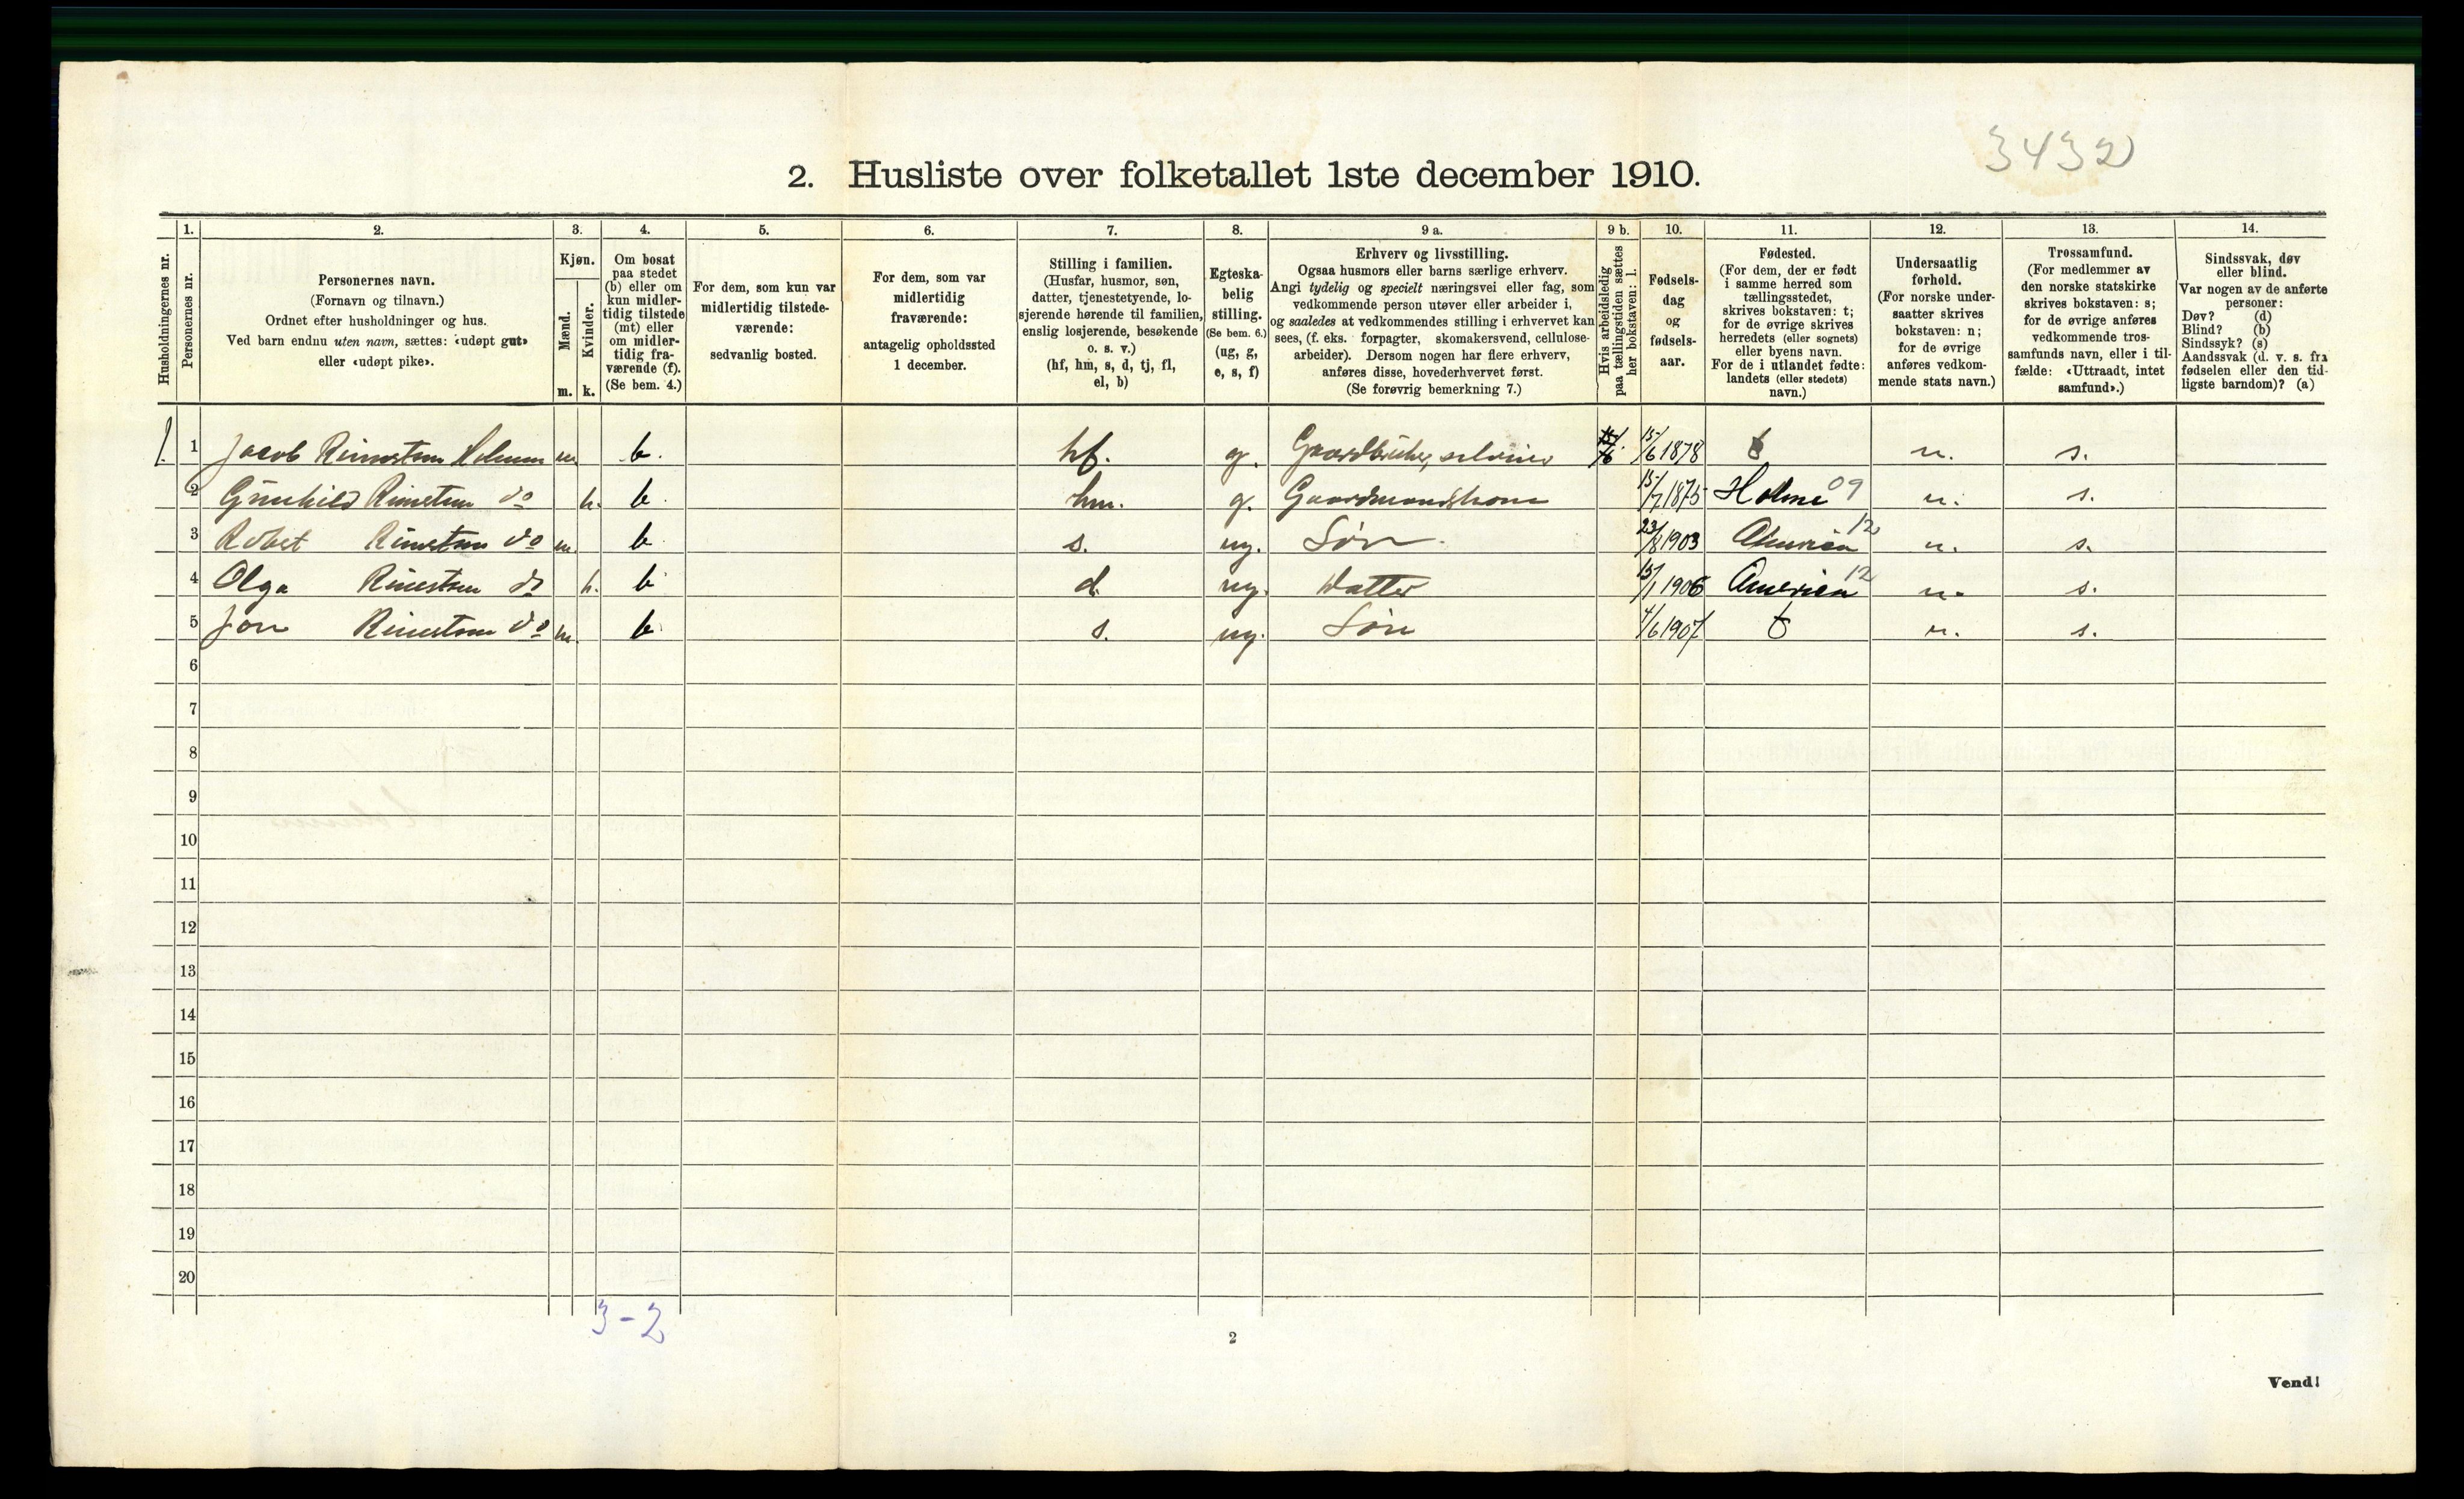 3432
2. Husliste over folketallet 1ste december 1910.
Husholdningernes nr.
1. Personernes nr.
2. Personernes navn.
(Fornavn og tilnavn.)
Ordnet efter husholdninger og hus.
Ved barn endnu uten navn, sættes: «udøpt gut»
eller «udøpt pike».
3. Kjøn.
Mænd. m.
Kvinder. k.
4. Om bosat
paa stedet
(b) eller om
kun midler-
tidig tilstede
(mt) eller
om midler-
tidig fra-
værende (f).
(Se bem. 4.)
5. For dem, som kun var
midlertidig tilstede-
værende:
sedvanlig bosted.
6. For dem, som var
midlertidig
fraværende:
antagelig opholdssted
1 december.
7. Stilling i familien.
(Husfar, husmor, søn,
datter, tjenestetyende, lo-
sjerende hørende til familien,
enslig losjerende, besøkende
o. s. v.)
(hf, hm, s, d, tj, fl,
el, b)
8. Egteska-
belig
stilling.
(Se bem. 6.)
(ug, g,
e, s, f)
9 a. Erhverv og livsstilling.
Ogsaa husmors eller barns særlige erhverv.
Angi tydelig og specielt næringsvei eller fag, som
vedkommende person utøver eller arbeider i,
og saaledes at vedkommendes stilling i erhvervet kan
sees, (f. eks. forpagter, skomakersvend, cellulose-
arbeider). Dersom nogen har flere erhverv,
anføres disse, hovederhvervet først.
(Se forøvrig bemerkning 7.)
9 b. Hvis arbeidsledig
paa tællingstiden sættes
her bokstaven: l.
10. Fødsels-
dag
og
fødsels-
aar.
11. Fødested.
(For dem, der er født
i samme herred som
tællingsstedet,
skrives bokstaven: t;
for de øvrige skrives
herredets (eller sognets)
eller byens navn.
For de i utlandet fødte:
landets (eller stedets)
navn.)
12. Undersaatlig
forhold.
(For norske under-
saatter skrives
bokstaven: n;
for de øvrige
anføres vedkom-
mende stats navn.)
13. Trossamfund.
(For medlemmer av
den norske statskirke
skrives bokstaven: s;
for de øvrige anføres
vedkommende tros-
samfunds navn, eller i til-
fælde: «Uttraadt, intet
samfund».)
14. Sindssvak, døv
eller blind.
Var nogen av de anførte
personer:
Døv? (d)
Blind? (b)
Sindssyk? (s)
Aandssvak (d. v. s. fra
fødselen eller den tid-
ligste barndom)? (a)
1 Jacob Rimestam Holmen m. b. hf. g. Gaardbruker, selveier 15/6 1878 t n. s.
2 Gunhild Rimestam do k. b. hm. g. Gaardmandskone 15/7 1875 Holme 09 n. s.
3 Robet Rimestam do m. b. s. ug. Søn 23/8 1903 America 12 n. s.
4 Olga Rimestam do k. b. d. ug. Datter 15/1 1906 America 12 n. s.
5 Jon Rimestam do m. b. s. ug. Søn 4/6 1907 t n. s.
6
7
8
9
10
11
12
13
14
15
16
17
18
19
20
3-2
2
Vend!